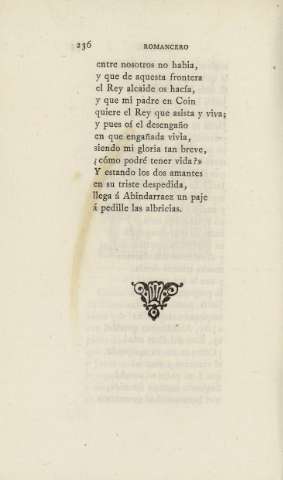 236 ROMANCERO
entre nosotros no habia,
y que de aquesta frontera
el Rey alcaide os hacía,
y que mi padre en Coin
quiere el Rey que asista y viva;
y pues oí el desengaño
en que engañada vivia,
siendo mi gloria tan breve,
¿cómo podré tener vida?»
Y estando los dos amantes
en su triste despedida,
llega á Abindarraez un paje
á pedille las albricias.